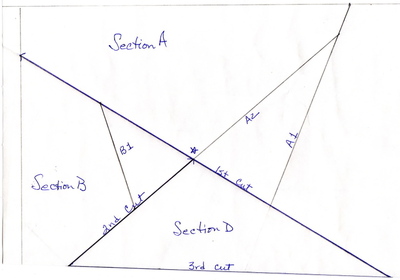 Section A
A2
A1
B1
★
1st Cut
Section B
2nd Cut
Section D
3rd cut